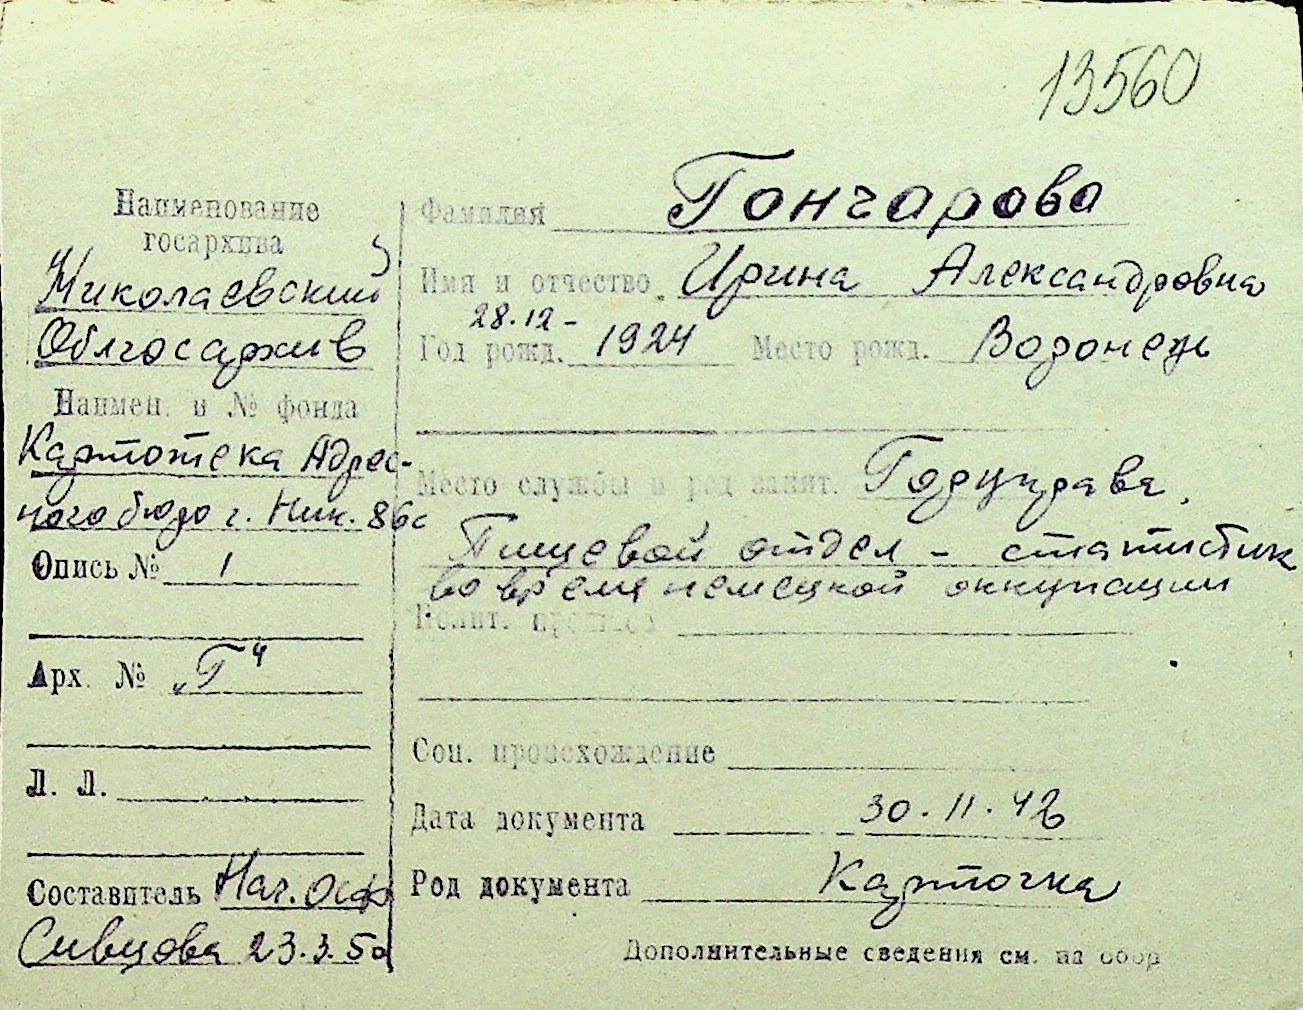 13560
Наименование
госархива
Николаевский
Облгосархив
Наимен. и № фонда
Картотека Адрес-
ного бюро г. Ник. 86с
Опись № 1
Арх. № „Г“
Л. Л.
Составитель Нач. ОСФ
Сивцова 23.3.50
Фамилия Гончарова
Имя и отчество Ирина Александровна
28.12-
Год рожд. 1924 Место рожд. Воронеж
Место службы и род занят. Горуправа,
Пищевой отдел - статистик
во время немецкой оккупации
Полит.
Соц. происхождение
Дата документа 30.11.42
Род документа Карточка
Дополнительные сведения см. на обор